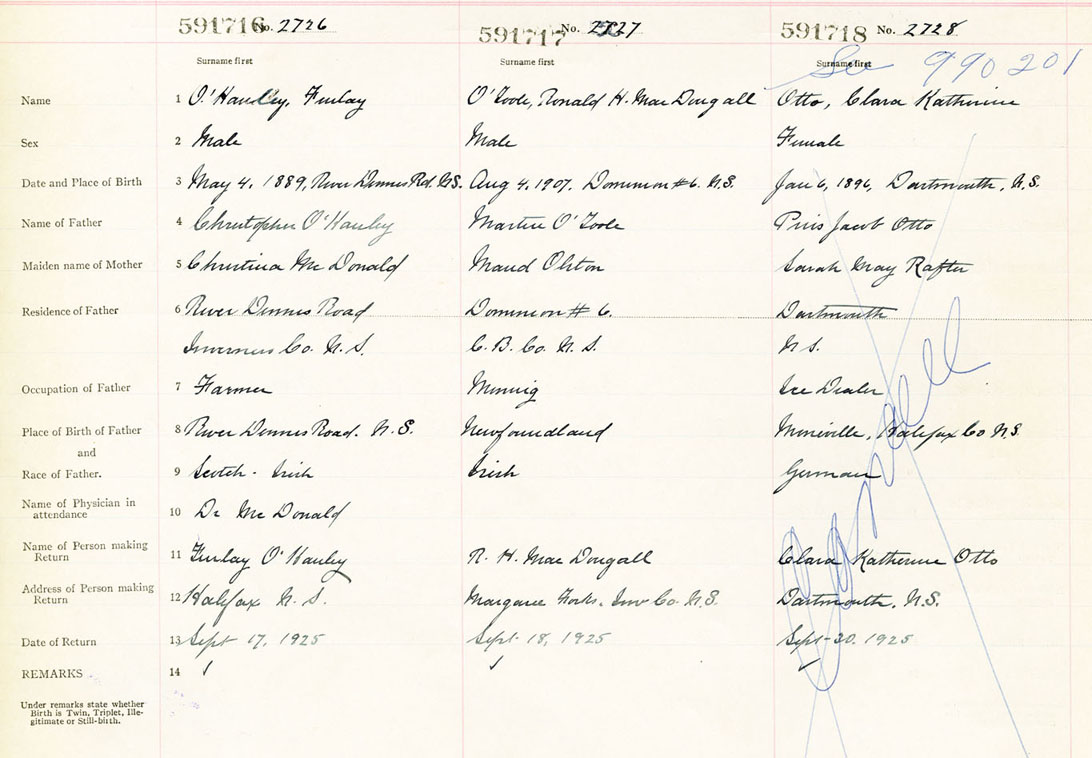 591716 No. 2726 591717 No. 2727 591718 No. 2728
Surname first Surname first Surname first See 990201
Name 1 O'Hanley, Finlay O'Toole, Ronald H. MacDougall Otto, Clara Katherine
Sex 2 Male Male Female
Date and Place of Birth 3 May 4, 1889, River Dennis Rd. N.S. Aug 4, 1907, Dominion #6. N.S. Jan 6, 1896, Dartmouth, N.S.
Name of Father 4 Christopher O'Hanley Martin O'Toole Jacob Otto
Maiden name of Mother 5 Christina McDonald Maud Sarah May Rafter
Residence of Father 6 River Dennis Road Dominion #6. Dartmouth
Inverness Co. N.S. C.B. Co. N.S. N.S.
Occupation of Father 7 Farmer Mining Ice Dealer
Place of Birth of Father 8 River Dennis Road. N.S. Newfoundland Halifax Co N.S.
and
Race of Father. 9 Scotch - Irish Irish German
Name of Physician in
attendance 10 Dr McDonald
Name of Person making
Return 11 Finlay O'Hanley R. H. MacDougall Clara Katherine Otto
Address of Person making
Return 12 Halifax N.S. Margaree Forks. Inv Co. N.S. Dartmouth, N.S.
Date of Return 13 Sept 17, 1925 Sept. 18, 1925 Sept-30, 1925
REMARKS 14
Under remarks state whether
Birth is Twin, Triplet, Ille-
gitimate or Still-birth.
Cancelled